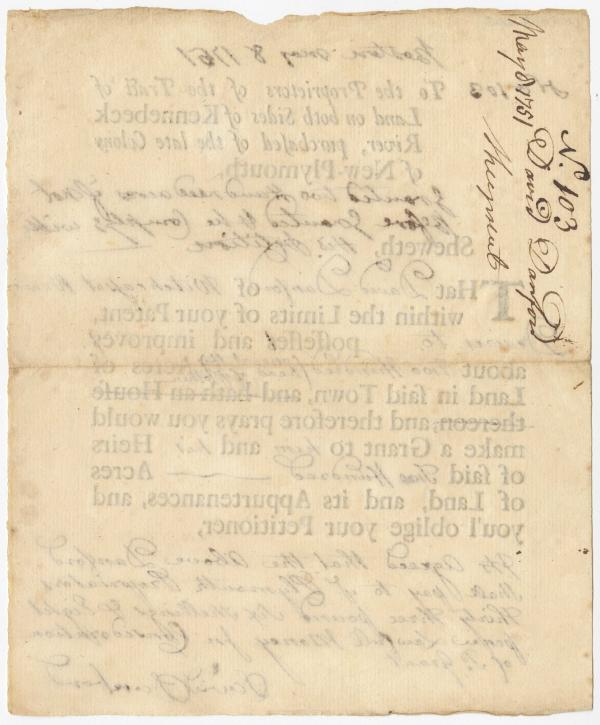 N.º 103
May 8 1751 David Danford
Boston May 8 1751
Nº 103 To the Proprietors of the Tract of
Land on both Sides of Kennebeck
River, purchased of the late Colony
of New-Plymouth.
Granted two Hundred acres if not
before Granted to be Complyd with
his Petition
Sheweth,
THat David Danford of
within the Limits of your Patent,
possesses and improved,
about two Hundred Acres of
Land in said Town, and hath an House
thereon, and therefore prays you would
make a Grant to him and his Heirs
of said Two Hundred Acres
of Land, and its Appurtenances, and
you'l oblige your Petitioner,
Its Agreed that the Above Danford
shall pay to yᵉ Plymouth Proprietors
Thirty three pound Six shillings & Eight
pence Lawfull Money in Consideration
of Grant
David Danford